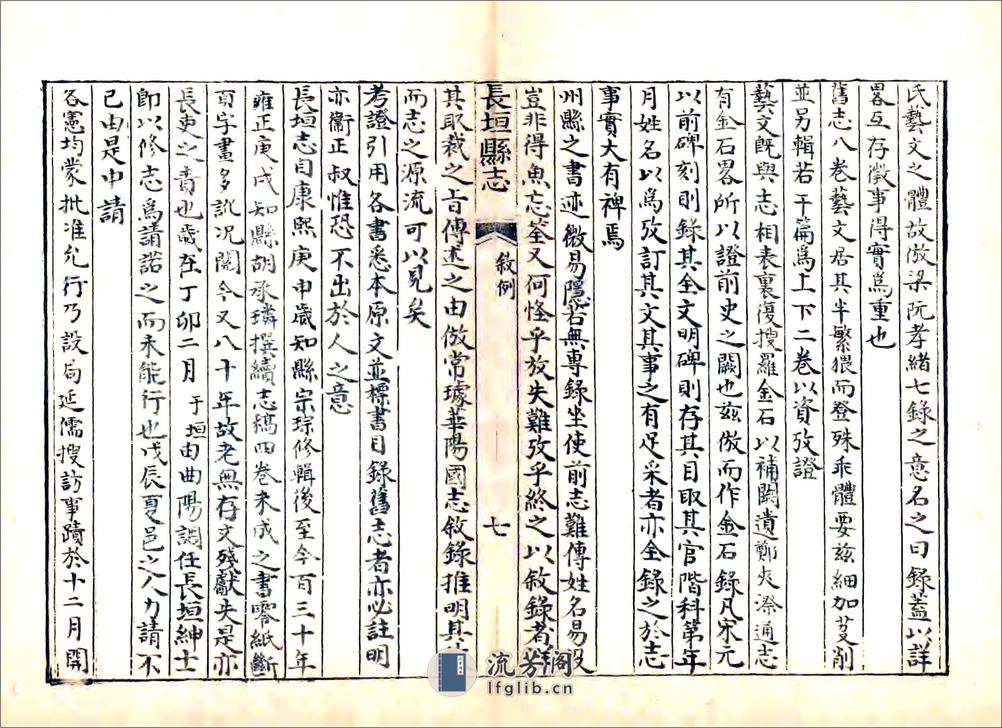 氏藝文之體故倣梁阮孝緒七錄之意名之曰錄蓋以詳
畧互存徵事得實爲重也
舊志八卷藝文居其半繁猥而登殊乖體要兹細加芟削
並另輯若干篇爲上下二卷以資攷證
藝文旣與志相表裏復搜羅金石以補闕遺鄭夾漈通志
有金石畧所以證前史之闕也兹倣而作金石錄凡宋元
以前碑刻則錄其全文明碑則存其目取其官階科第年
月姓名以爲攷訂其文其事之有足采者亦全錄之於志
事實大有裨焉
州縣之書迹微易隱若無專錄坐使前志難傳姓名易
豈非得魚忘筌又何怪乎放失難攷乎終之以敘錄者詳
長垣縣志
敘例
七
其取裁之旨傳述之由倣常璩華陽國志敘錄推明其
而志之源流可以見矣
考證引用各書悉本原文並標書目錄舊志者亦必註明
亦衞正叔惟恐不出於人之意
長垣志自康熙庚申歲知縣宗琮修輯後至今百三十年
雍正庚戌知縣胡承璘撰續志稿四卷未成之書零紙斷
頁字畫多訛况閱今又八十年故老無存文殘獻失是亦
長吏之責也歲在丁卯二月于垣由曲陽調任長垣紳士
即以修志爲請諾之而未能行也戊辰夏邑之人力請不
已由是申請
各憲均蒙批准允行乃設局延儒搜訪事蹟於十二月開
流芳閣
lfglib.cn